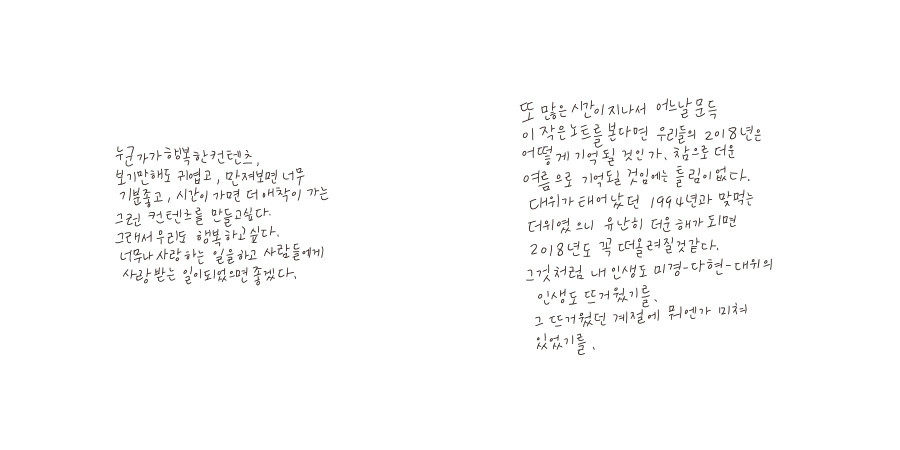 누군가가 행복한 컨텐츠,
보기만해도 귀엽고, 만져보면 너무
기분좋고, 시간이 가면 더 애착이 가는
그런 컨텐츠를 만들고싶다.
그래서 우리도 행복하고싶다.
너무나 사랑하는 일을하고 사람들에게
사랑받는 일이되었으면 좋겠다.
또 많은 시간이 지나서 어느날 문득
이 작은 노트를 본다면 우리들의 2018년은
어떻게 기억될 것인가. 참으로 더운
여름으로 기억될 것임에는 틀림이 없다.
대위가 태어났던 1994년과 맞먹는
더위였으니 유난히 더운 해가 되면
2018년도 꼭 떠올려질것같다.
그것처럼 내 인생도 미경-다현-대위의
인생도 뜨거웠기를.
그 뜨거웠던 계절에 뭐엔가 미쳐
있었기를.